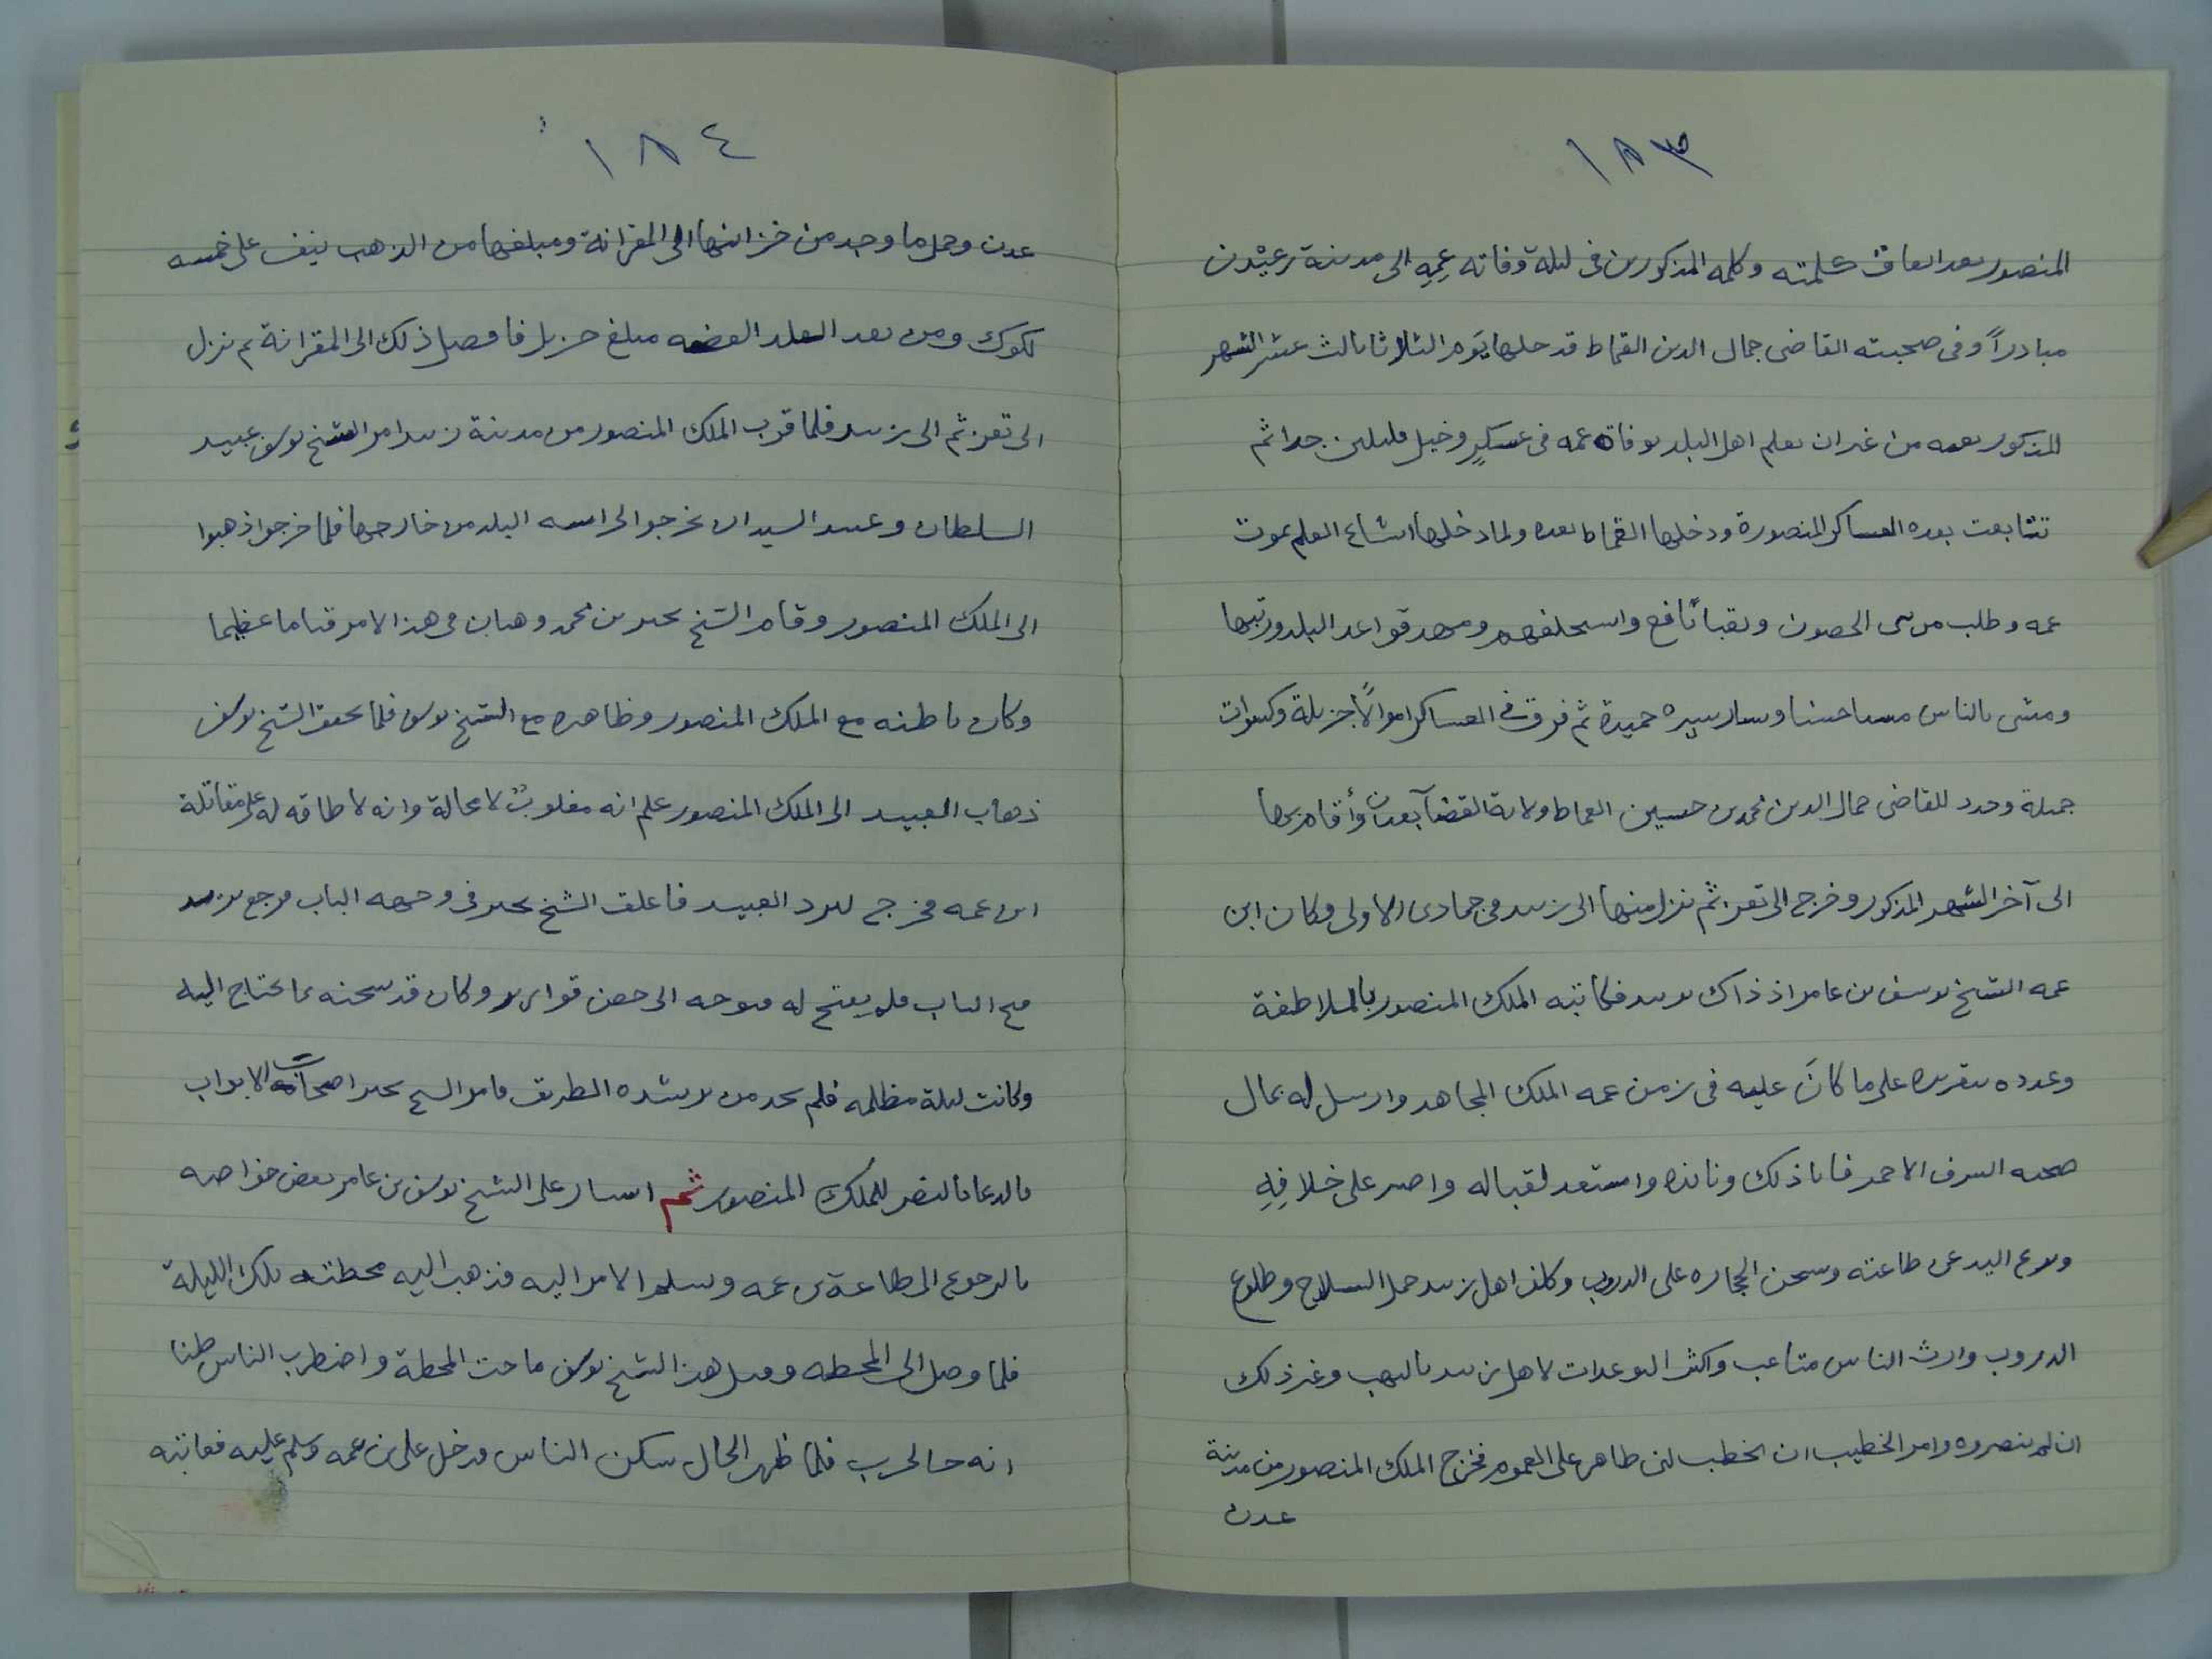 ١٨٣
المنصور بعد اتفاق كلمته وكلمه المذكورين فى ليلة وفاته عمه الى مدينة عدن
مبادراً وفى صحبته القاضى جمال الدين القماط قد حلها يوم الثلاثا ثالث عشر الشهر
المذكور بغيه من غير ان يعلم اهل البلد بوفاة عمه فى عسكرٍ وخيل قليلين جدا ثم
تتابعت بعده العساكر المنصورة ودخلها القماط بعده ولما دخلها اشاع العلم بموت
عمه وطلب من فى الحصون ونقبا يافع واستحلفهم ومهد قواعد البلد ورتبها
ومشى بالناس مشيا حسنا وسار سيره حميدة ثم فرق فى العساكر اموالاً جزيلة وكسوات
جميلة وجدد للقاضى جمال الدين محمد بن حسين القماط ولاية القضآ بعدن وأقام بها
الى آخر الشهر المذكور وخرج الى تعز ثم نزل منها الى زبيد فى جمادى الاولى وكان ابن
عمه الشيخ يوسف بن عامر اذ ذاك بزبيد فكاتبه الملك المنصور بالملاطفة
وعدده بتقريره على ما كانَ عليه فى زمن عمه الملك المجاهد وارسل له بمال
صحبه الشرف الاحمر فابا ذلك ونابذه واستعد لقباله واصر على خلافِهِ
ونزع اليد عن طاعته وشحن الحجاره على الدروب وكلف اهل زبيد حمل السلاح وطلوع
الدروب وارث الناس متاعب واكثر التوعدات لاهل زبيد بالنهب وغير ذلك
ان لم ينصروه وامر الخطيب ان يخطب لبنى طاهر على العموم فخرج الملك المنصور من مدينة
عدن
١٨٤
عدن وحمل ما وجد من خزائنها الى المقرانة ومبلغها من الذهب ينف على خمسه
لكوك ومن نقد البلد الفضه مبلغ جزيل فاوصل ذلك الى المقرانة ثم نزل
الى تعز ثم الى زبيد فلما قرب الملك المنصور من مدينة زبيد امر الشيخ يوسف عبيد
السلطان وعبيد السيد ان يخرجوا الى البلد من خارجها فلما خرجوا ذهبوا
الى الملك المنصور وقام الشيخ محمد وهبان فى هذا الامر قياما عظيما
وكان باطنه مع الملك المنصور وظاهره مع الشيخ يوسف فلما تحقق الشيخ يوسف
ذهاب العبيد الى الملك المنصور علم انه مغلوبٌ لا محالة وانه لا طاقه له على مقاتلة
ابن عمه فخرج ليرد العبيد فاغلق الشيخ فى وجهه الباب فرجع يريد
فتح الباب فلم يفتح له فتوجه الى حصن قوارير وكان قد شحنه بما يحتاج اليه
وكانت ليلة مظلمه فلم يجد من يرشده الطريق فامر الشيخ الابواب
بالدعا بالنصر للملك المنصور ثم اشار على الشيخ يوسف بن عامر بعض خواصه
بالرجوع الى طاعة بن عمه وتسليم الامر اليه فذهب اليه محطته تلك الليلة
فلما وصل الى المحطه وقيل هذا الشيخ يوسف ماجت المحطة واضطرب الناس ظنا
انه جا لحرب فلما ظهر الحال سكن الناس فدخل على بن عمه وسلم عليه فعاتبه